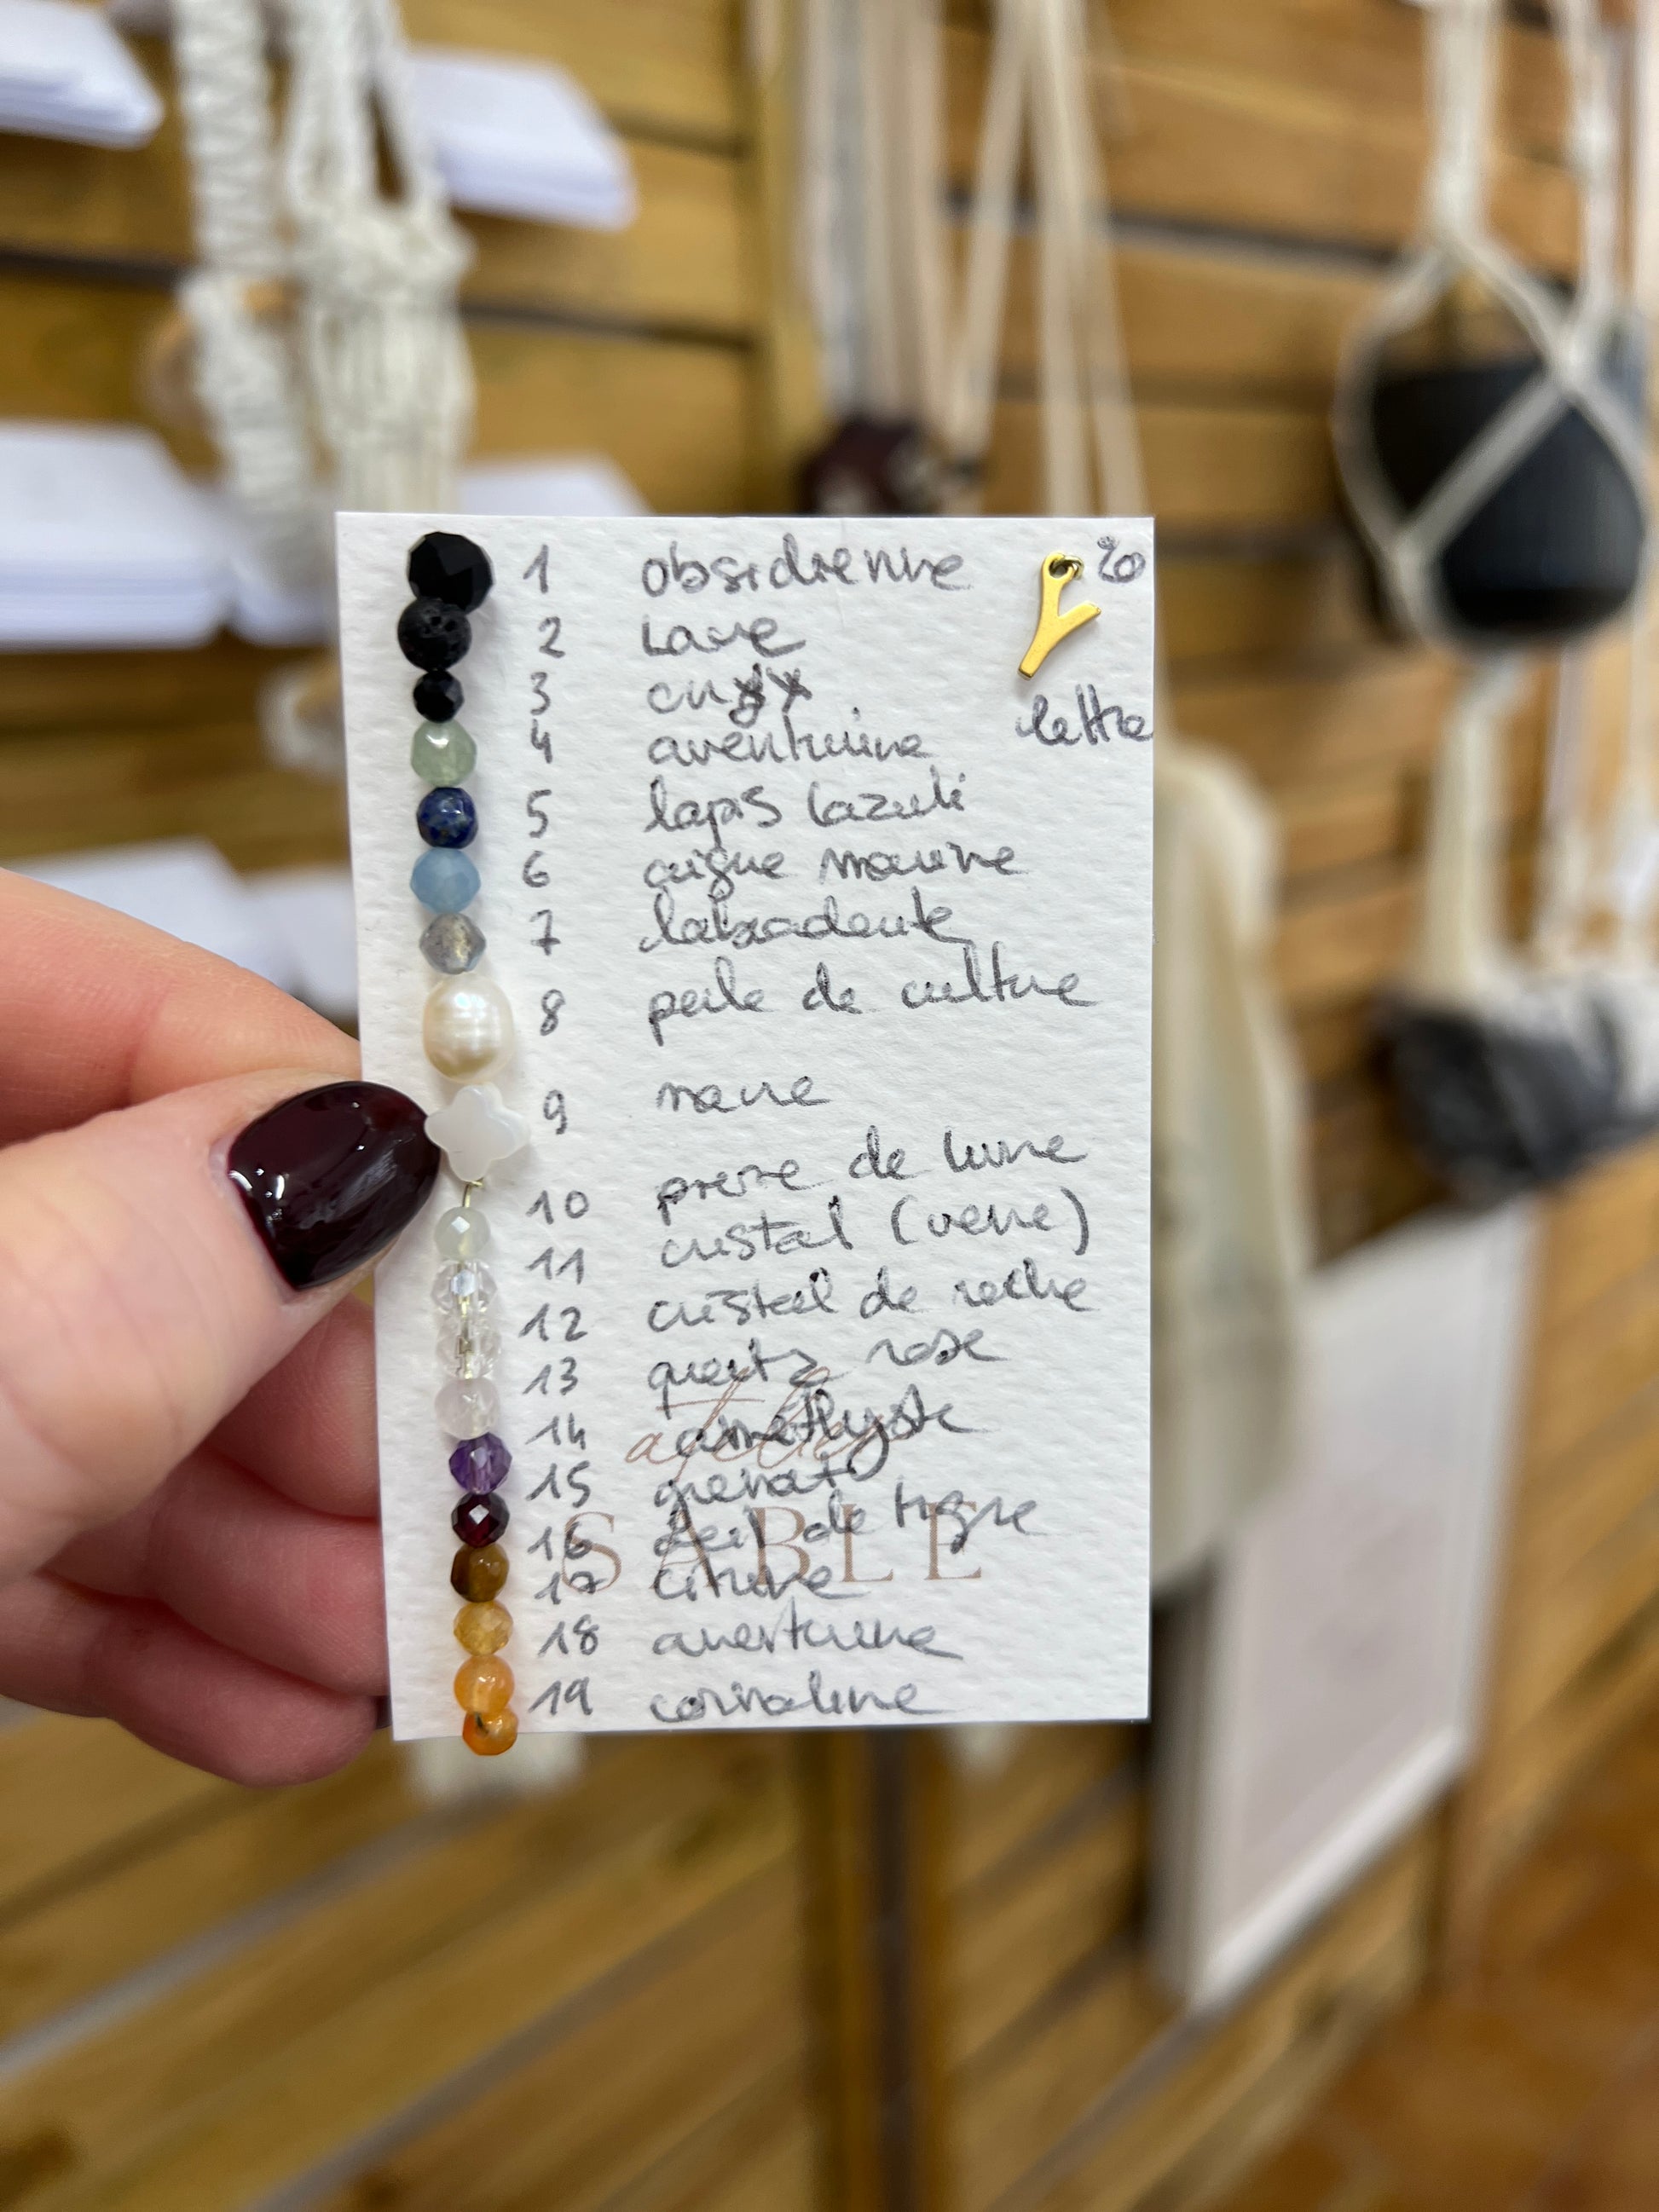 1 obsidienne
20
2 Lave
lettre
3 onyx
4 aventurine
5 lapis lazuli
6 aigue marine
7 labradorite
8 perle de culture
9 nacre
10 pierre de lune
11 cristal (verre)
12 cristal de roche
13 quartz rose
14 améthyste
atelier
15 grenat
16 œil de tigre
SABLE
17 citrine
18 aventurine
19 cornaline